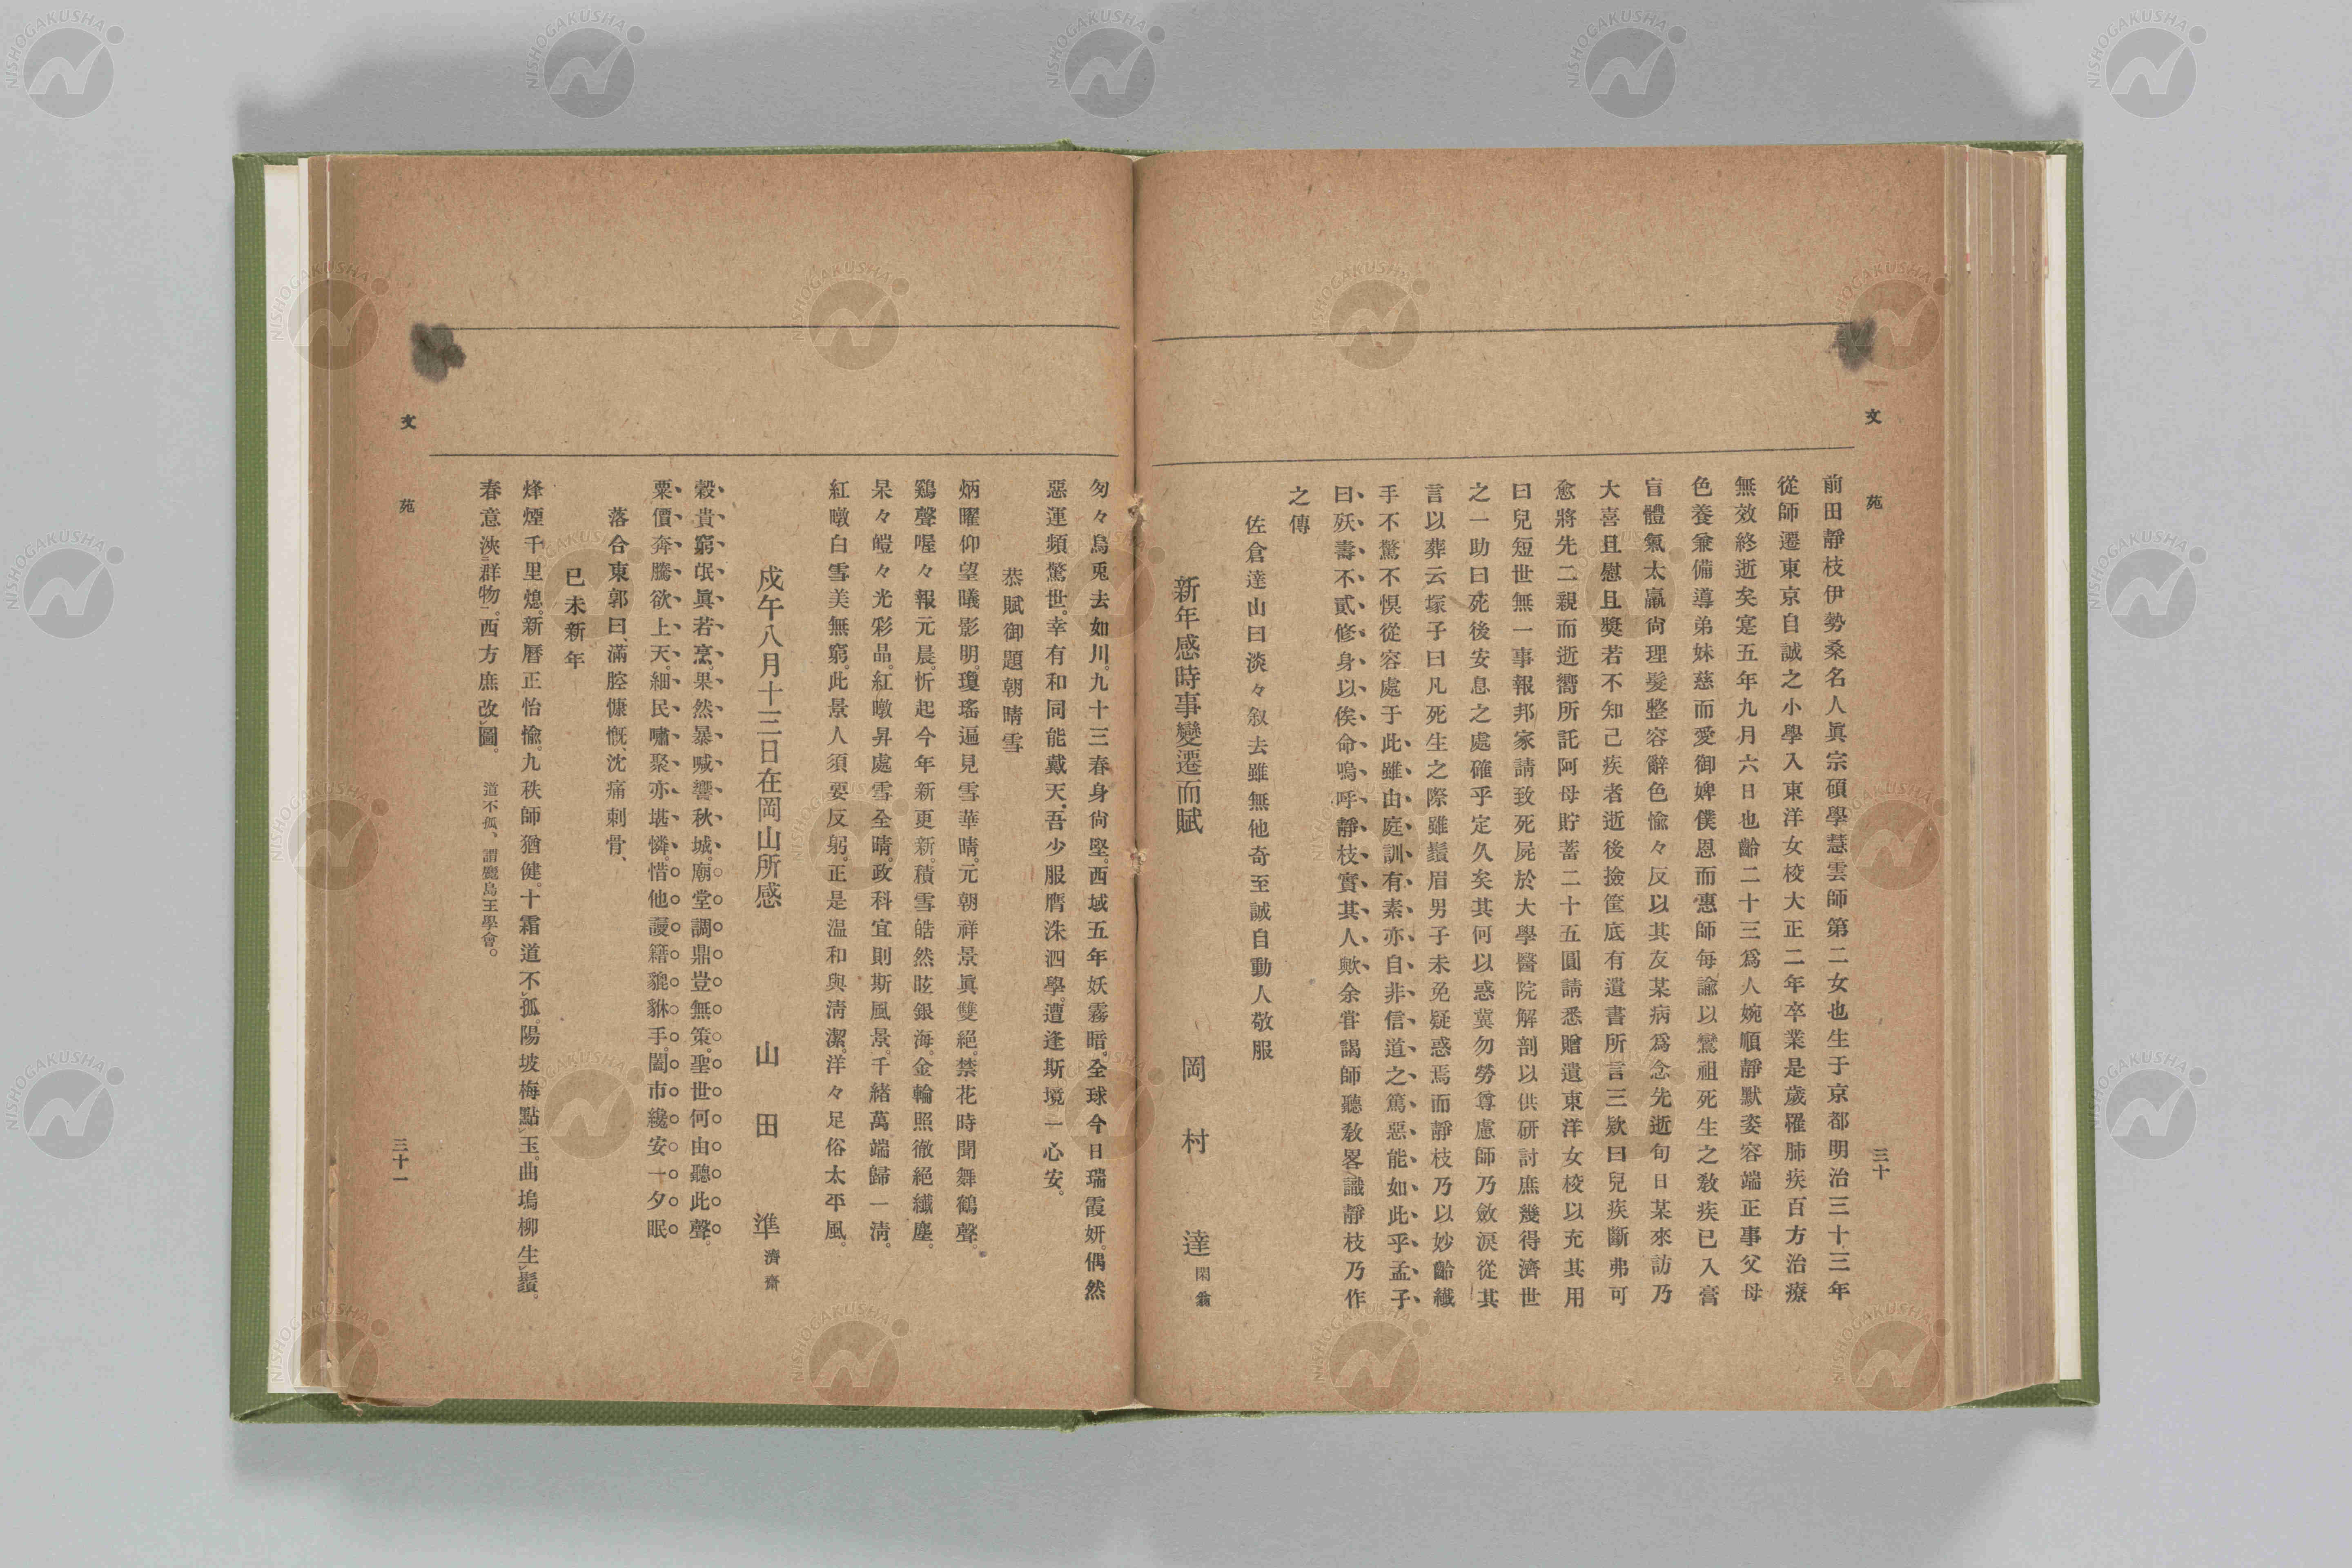 文苑
三十
前田靜枝伊勢桑名人眞宗碩學慧雲師第二女也生于京都明治三十三年
從師遷東京自誠之小學入東洋女校大正二年卒業是歲罹肺疾百方治療
無效終逝矣寔五年九月六日也齡二十三爲人婉順靜默姿容端正事父母
色養兼備導弟妹慈而愛御婢僕恩而惠師每諭以鸞祖死生之敎疾已入膏
肓體氣太羸尙理髮整容辭色愉々反以其友某病爲念先逝旬日某來訪乃
大喜且慰且奬若不知己疾者逝後撿筐底有遺書所言三欵曰兒疾斷弗可
愈將先二親而逝嚮所託阿母貯蓄二十五圓請悉贈遺東洋女校以充其用
曰兒短世無一事報邦家請致死屍於大學醫院解剖以供硏討庶幾得濟世
之一助曰死後安息之處確乎定久矣其何以惑冀勿勞尊慮師乃斂淚從其
言以葬云塚子曰凡死生之際雖鬚眉男子未免疑惑焉而靜枝乃以妙齡纖
手不驚不愼從容處于此、雖、由、庭、訓、有、素、亦、自、非、信、道、之、篤、惡、能、如、此、乎、孟、子、
曰、殀、壽、不、貳、修、身、以、俟、命、嗚、呼、靜、枝、實、其、人、歟、余甞謁師聽敎畧識靜枝乃作
之傳
佐倉達山曰淡々叙去雖無他奇至誠自動人敬服
新年感時事變遷而賦 岡村達 閑翁
匆々烏兎去如川。九十三春身尙堅。西域五年妖霧暗。全球今日瑞霞妍。偶然
惡運頻驚世。幸有和同能戴天。吾少服膺洙泗學。遭逢斯境一心安。
恭賦御題朝晴雪
炳曜仰望曦影明。瓊瑤遍見雪華晴。元朝祥景眞雙絕。禁花時聞舞鶴聲。
鷄聲喔々報元晨。忻起今年新更新。積雪皓然眩銀海。金輪照徹絕纖塵。
杲々皚々光彩品。紅暾昇處雪全晴。政科宜則斯風景。千緖萬端歸一淸。
紅暾白雪美無窮。此景人須要反躬。正是溫和與淸潔。洋々足俗太平風。
戍午八月十三日在岡山所感 山田準 濟齋
穀、貴、窮、氓、眞、若、烹。果、然、暴、喊、響、秋、城。廟堂調鼎豈無策。聖世何由聽此聲。
粟、價、奔、騰、欲、上、天。細、民、嘯、聚、亦、堪、憐。惜他謾籍貔貅手。闔市纔安一夕眠
落合東郭曰、滿腔慷慨、沈痛刺骨、
已未新年
烽煙千里熄。新曆正怡愉。九秩師猶健。十霜道不孤。陽坡梅點玉。曲塢柳生鬚。
春意浹群物。西方庶改圖。 道不孤、謂鹿島王學會。
文苑
三十一